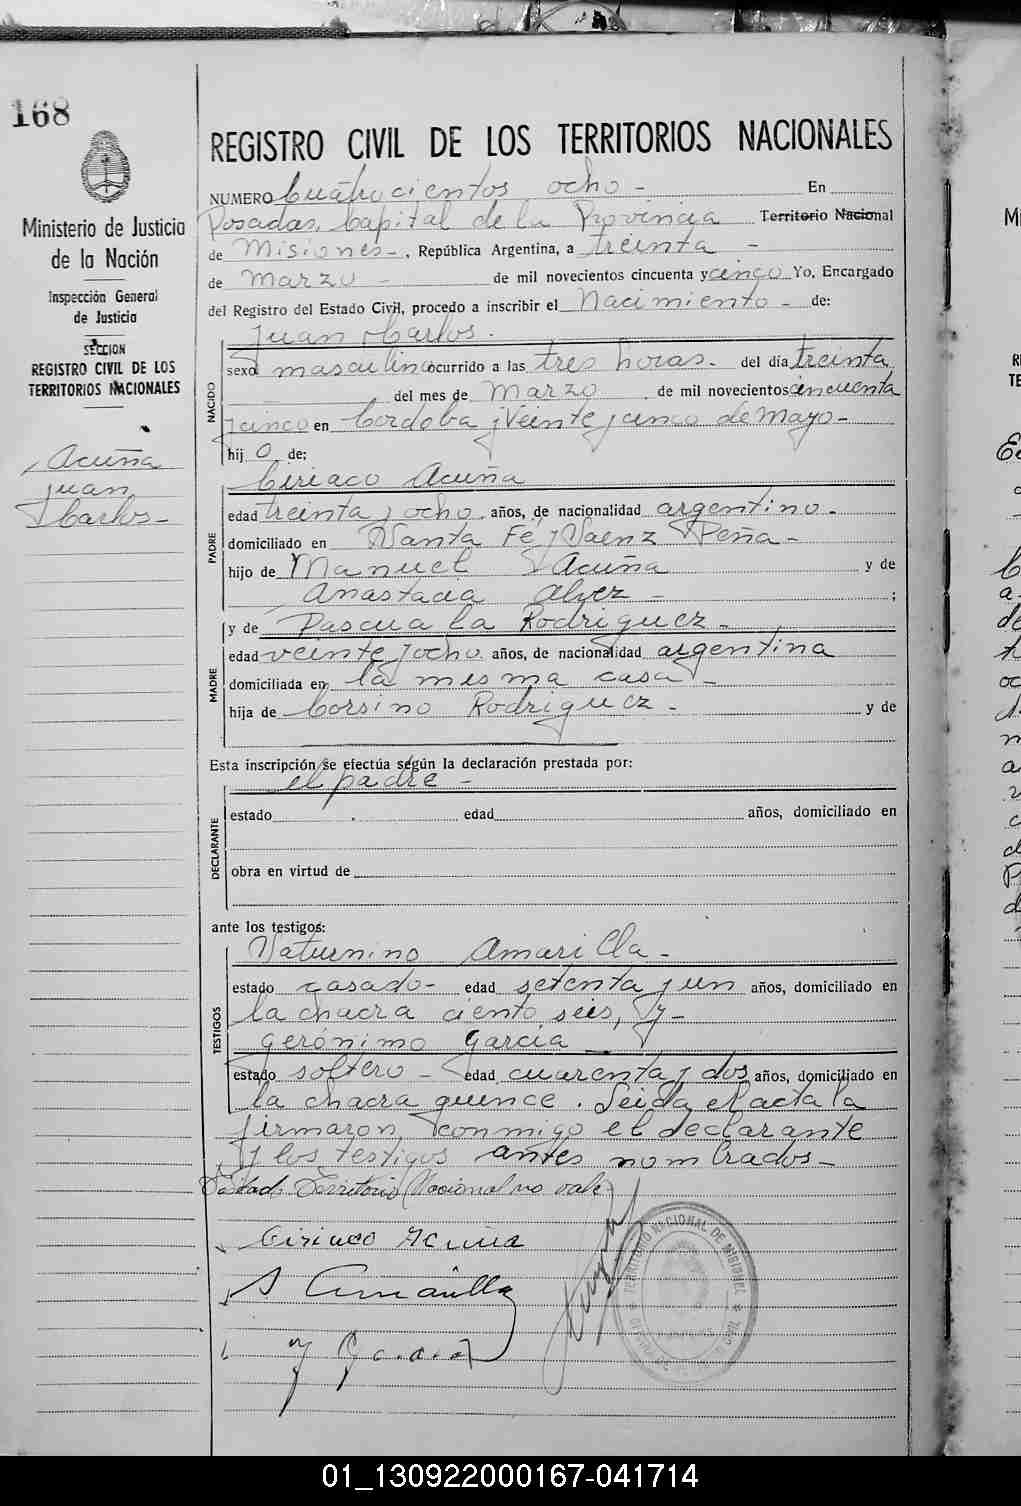 168
Ministerio de Justicia
de la Nación
Inspección General
de Justicia
SECCION
REGISTRO CIVIL DE LOS
TERRITORIOS NACIONALES
Acuña
Juan
Carlos-
REGISTRO CIVIL DE LOS TERRITORIOS NACIONALES
NUMERO Cuatrocientos ocho - En
Posadas, Capital de la Provincia Territorio Nacional
de Misiones-, República Argentina, a treinta -
de Marzo - de mil novecientos cincuenta y cinco Yo, Encargado
del Registro del Estado Civil, procedo a inscribir el Nacimiento - de:
Juan Carlos.
NACIDO
sexo masculino ocurrido a las tres horas. del día treinta
del mes de Marzo de mil novecientos cincuenta
y cinco en Cordoba y Veinte y cinco de Mayo-
hij o de:
PADRE
Ciriaco Acuña
edad treinta y ocho años, de nacionalidad argentino-
domiciliado en Santa Fé y Saenz Peña-
hijo de Manuel Acuña y de
Anastacia Alvez - ;
y de Pascuala Rodriguez-
MADRE
edad veinte y ocho años, de nacionalidad argentina
domiciliada en la misma casa -
hija de Corsino Rodriguez- y de
Esta inscripción se efectúa según la declaración prestada por:
el padre -
DECLARANTE
estado edad años, domiciliado en
obra en virtud de
ante los testigos:
TESTIGOS
Saturnino Amarilla-
estado casado- edad setenta y un años, domiciliado en
la chacra ciento seis, y-
Gerónimo Garcia
estado soltero - edad cuarenta y dos años, domiciliado en
la chacra quince. Leida el acta la
firmaron conmigo el declarante
y los testigos antes nombrados-
Testado Territorio Nacional no vale
Ciriaco Acuña
S Amarilla
TERRITORIO NACIONAL DE MISIONES
01_130922000167-041714